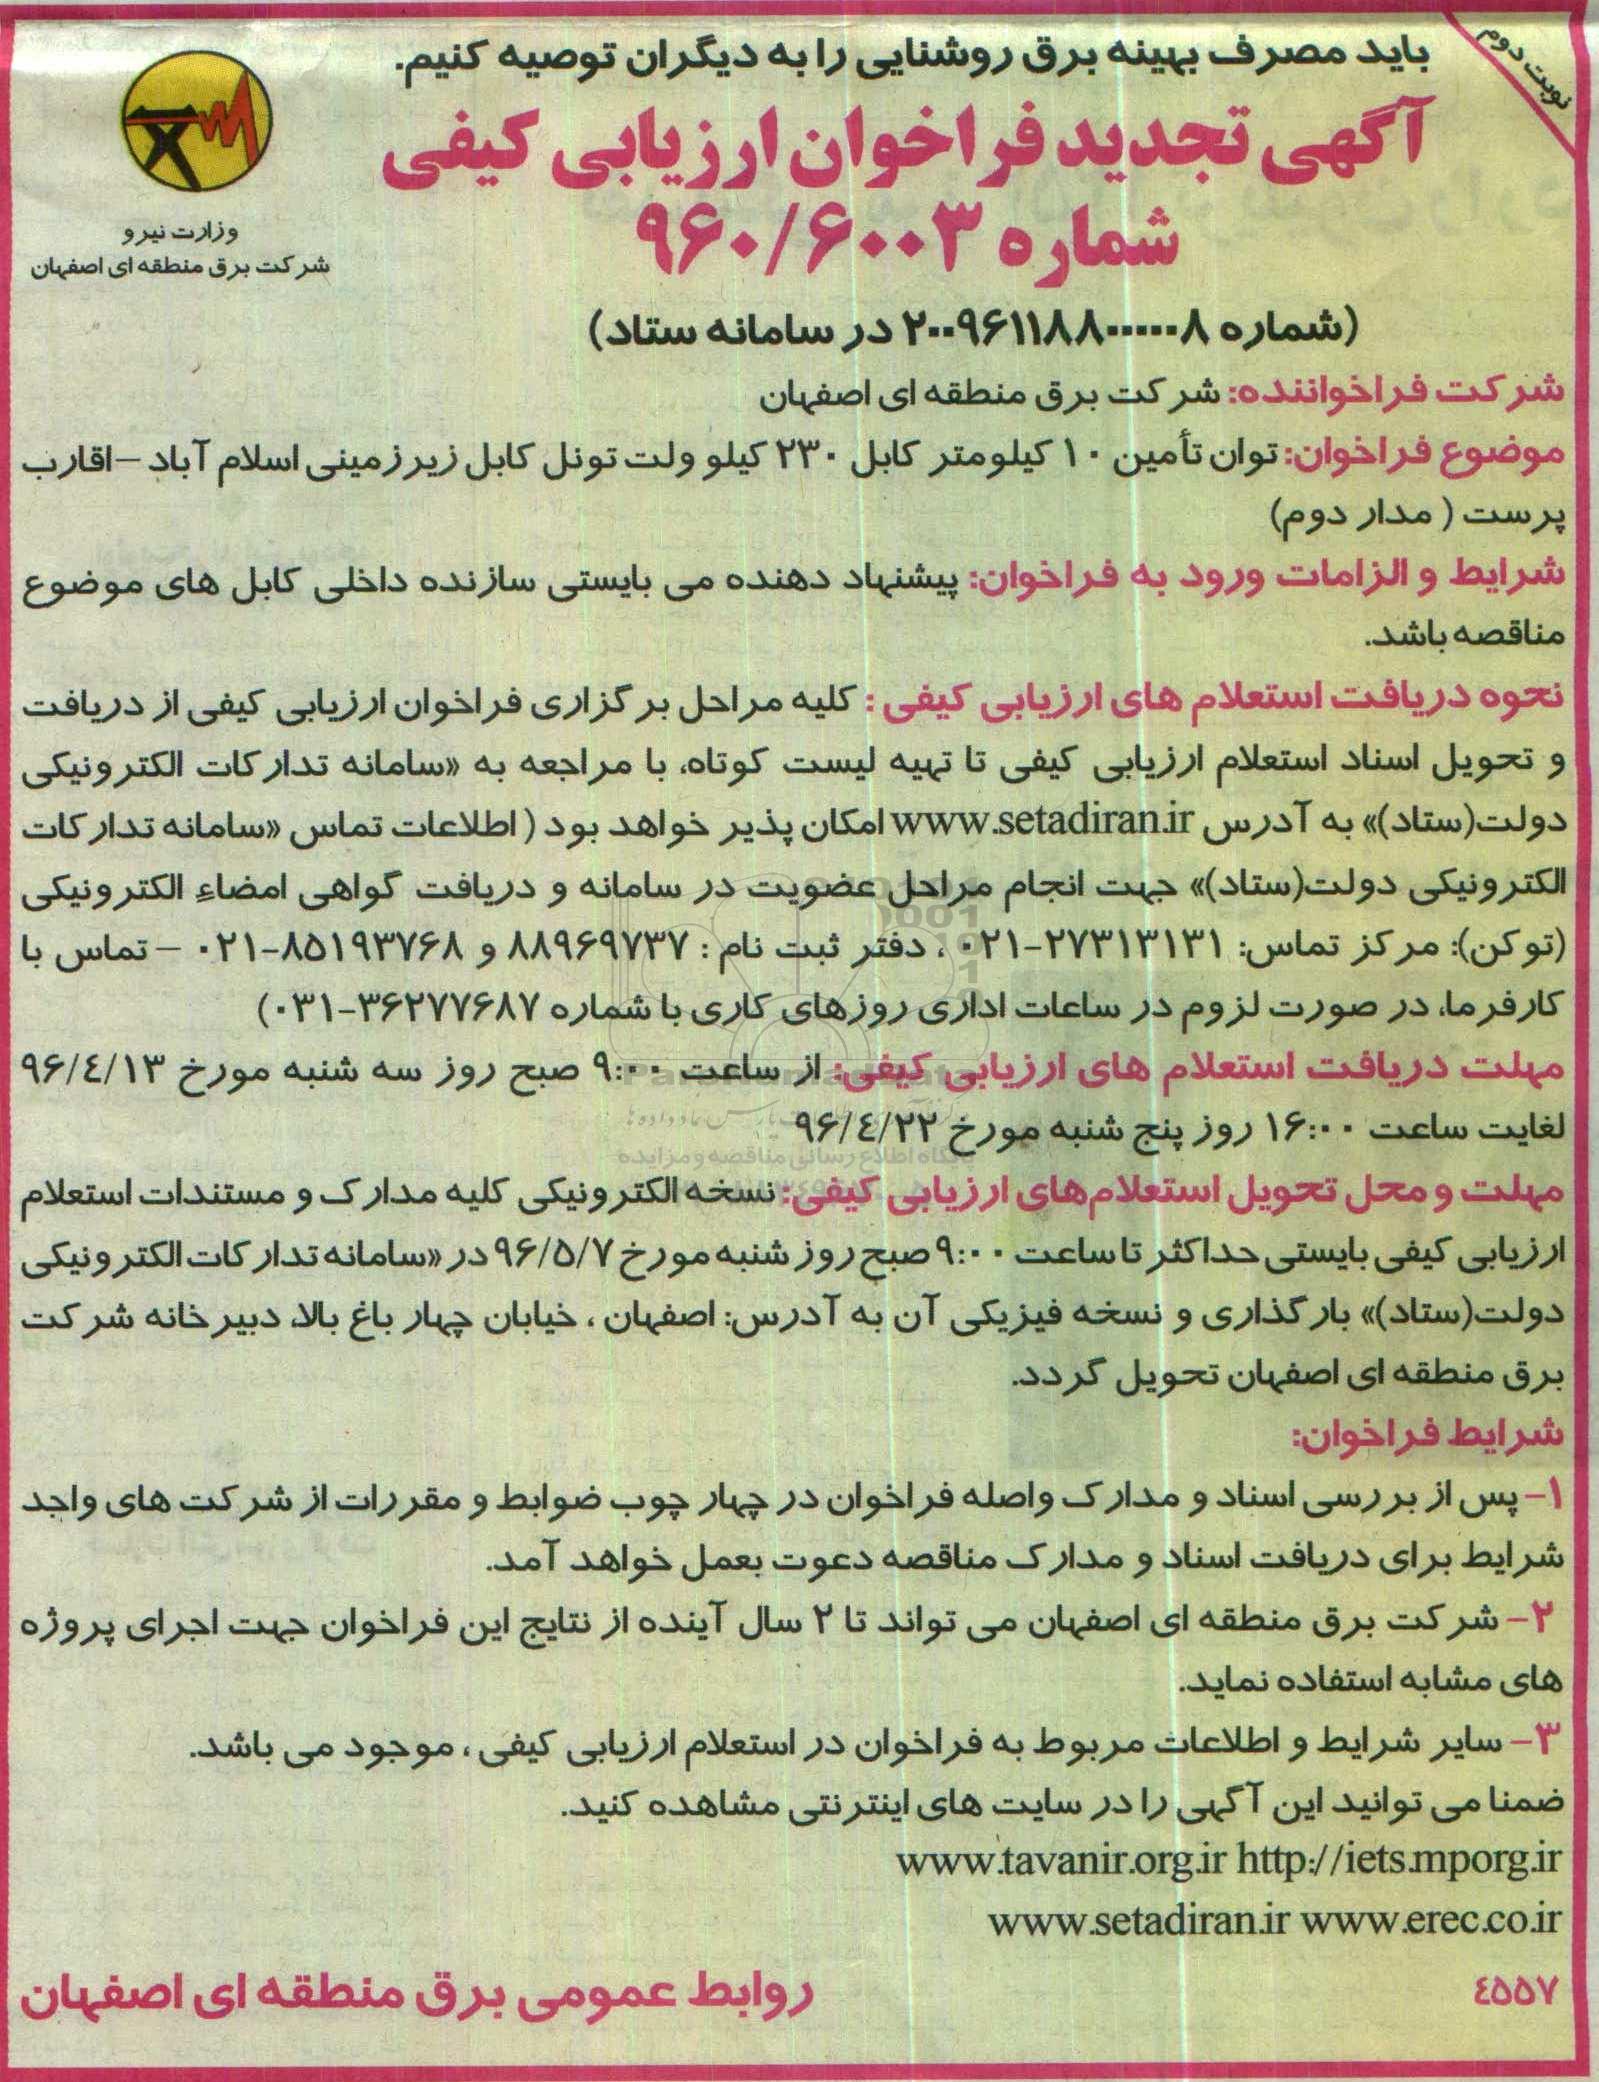 نوبت دوم
باید مصرف بهینه برق روشنایی را به دیگران توصیه کنیم.
آگهی تجدید فراخوان ارزیابی کیفی
شماره ۹۶۰/۶۰۰۳
وزارت نیرو
شرکت برق منطقه ای اصفهان
(شماره ۲۰۰۹۶۱۱۸۸۰۰۰۰۰۸ در سامانه ستاد)
شرکت فراخواننده: شرکت برق منطقه ای اصفهان
موضوع فراخوان: توان تأمین ۱۰ کیلومتر کابل ۲۳۰ کیلو ولت تونل کابل زیرزمینی اسلام آباد –اقارب
پرست ( مدار دوم)
شرایط و الزامات ورود به فراخوان: پیشنهاد دهنده می بایستی سازنده داخلی کابل های موضوع
مناقصه باشد.
نحوه دریافت استعلام های ارزیابی کیفی : کلیه مراحل برگزاری فراخوان ارزیابی کیفی از دریافت
و تحویل اسناد استعلام ارزیابی کیفی تا تهیه لیست کوتاه، با مراجعه به «سامانه تدارکات الکترونیکی
دولت(ستاد)» به آدرس www.setadiran.ir امکان پذیر خواهد بود ( اطلاعات تماس «سامانه تدارکات
الکترونیکی دولت(ستاد)» جهت انجام مراحل عضویت در سامانه و دریافت گواهی امضاء الکترونیکی
(توکن): مرکز تماس: ۲۷۳۱۳۱۳۱-۰۲۱ ، دفتر ثبت نام : ۸۸۹۶۹۷۳۷ و ۸۵۱۹۳۷۶۸-۰۲۱ – تماس با
کارفرما، در صورت لزوم در ساعات اداری روزهای کاری با شماره ۳۶۲۷۷۶۸۷-۰۳۱)
مهلت دریافت استعلام های ارزیابی کیفی: از ساعت ۹:۰۰ صبح روز سه شنبه مورخ ۹۶/٤/۱۳
لغایت ساعت ۱۶:۰۰ روز پنج شنبه مورخ ۹۶/٤/۲۲
پایگاه اطلاع رسانی مناقصه و مزایده
مهلت و محل تحویل استعلام‌های ارزیابی کیفی: نسخه الکترونیکی کلیه مدارک و مستندات استعلام
ارزیابی کیفی بایستی حداکثر تا ساعت ۹:۰۰ صبح روز شنبه مورخ ۹۶/۵/۷ در «سامانه تدارکات الکترونیکی
دولت(ستاد)» بارگذاری و نسخه فیزیکی آن به آدرس: اصفهان ، خیابان چهار باغ بالا، دبیرخانه شرکت
برق منطقه ای اصفهان تحویل گردد.
شرایط فراخوان:
۱- پس از بررسی اسناد و مدارک واصله فراخوان در چهار چوب ضوابط و مقررات از شرکت های واجد
شرایط برای دریافت اسناد و مدارک مناقصه دعوت بعمل خواهد آمد.
۲- شرکت برق منطقه ای اصفهان می تواند تا ۲ سال آینده از نتایج این فراخوان جهت اجرای پروژه
های مشابه استفاده نماید.
۳- سایر شرایط و اطلاعات مربوط به فراخوان در استعلام ارزیابی کیفی ، موجود می باشد.
ضمنا می توانید این آگهی را در سایت های اینترنتی مشاهده کنید.
www.tavanir.org.ir http://iets.mporg.ir
www.setadiran.ir www.erec.co.ir
٤۵۵۷
روابط عمومی برق منطقه ای اصفهان